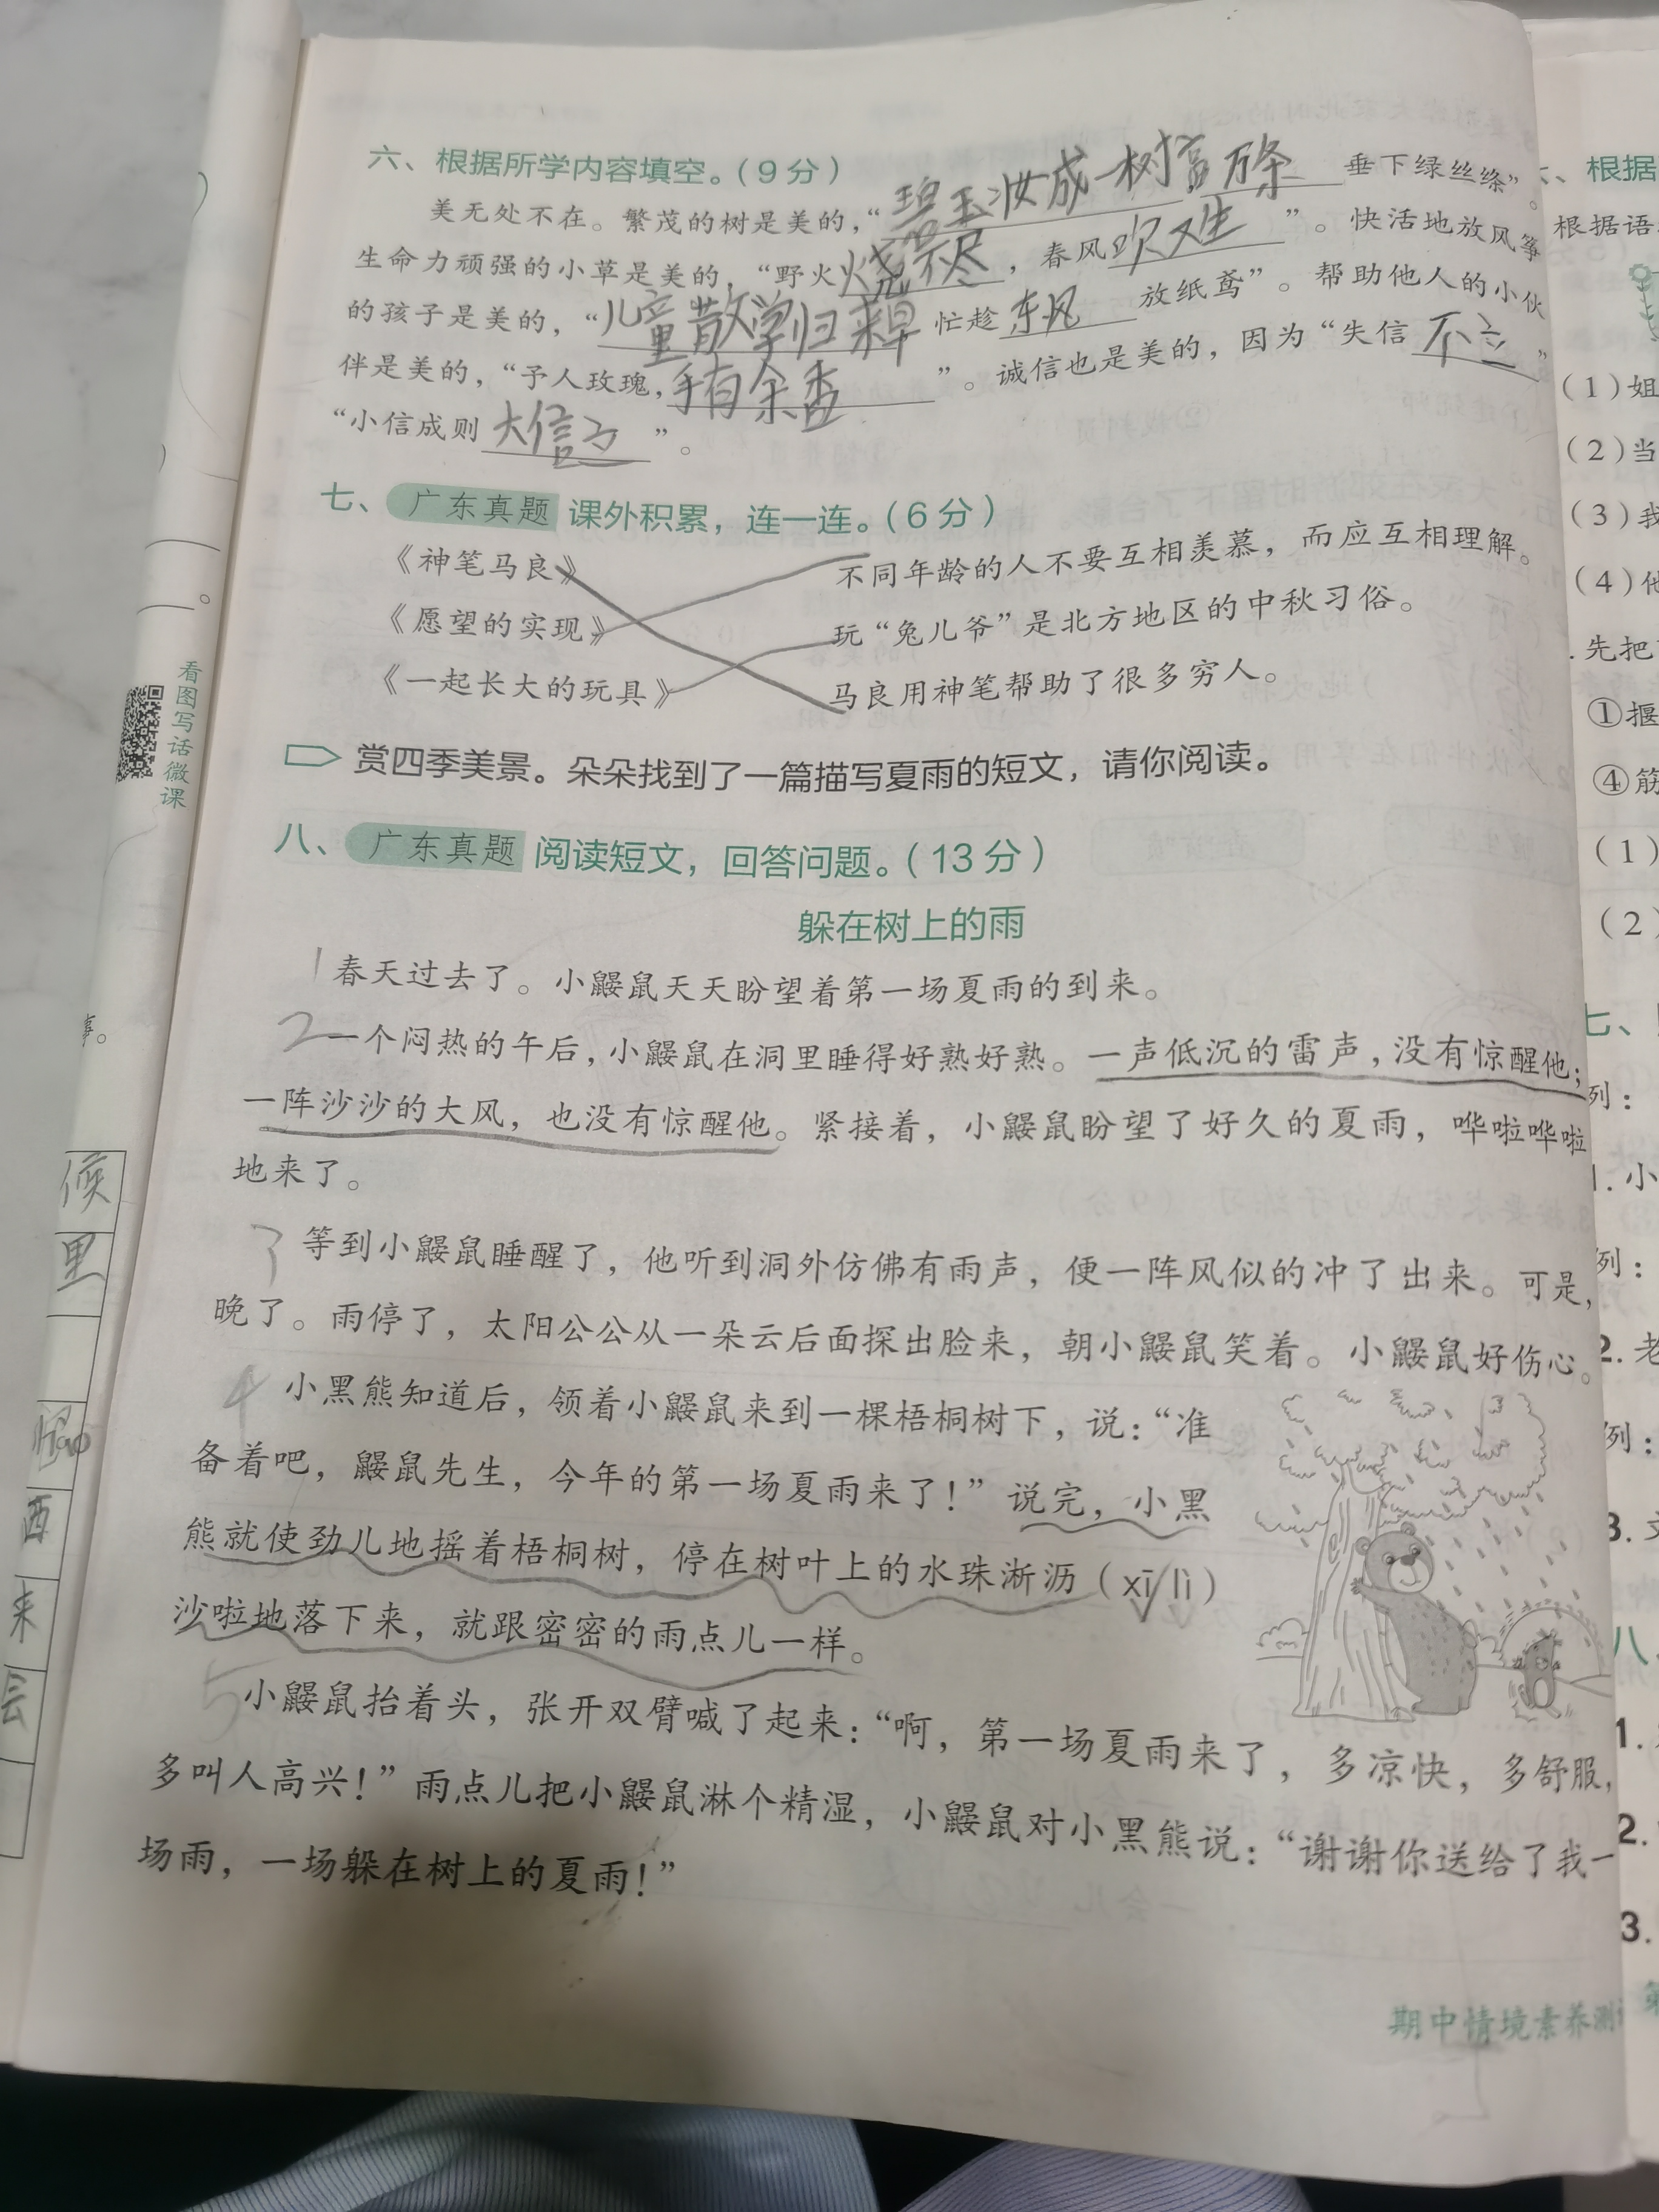 六、根据所学内容填空。(9分)
美无处不在。繁茂的树是美的，“碧玉妆成一树高 万条 垂下绿丝绦”。
生命力顽强的小草是美的，“野火烧不尽，春风吹又生”。快活地放风筝
的孩子是美的，“儿童散学归来早 忙趁东风放纸鸢”。帮助他人的小伙
伴是美的，“予人玫瑰，手有余香”。诚信也是美的，因为“失信不立”
“小信成则大信立”。
七、广东真题 课外积累，连一连。(6分)
《神笔马良》 不同年龄的人不要互相羡慕，而应互相理解。
《愿望的实现》 玩“兔儿爷”是北方地区的中秋习俗。
《一起长大的玩具》 马良用神笔帮助了很多穷人。
赏四季美景。朵朵找到了一篇描写夏雨的短文，请你阅读。
八、广东真题 阅读短文，回答问题。(13分)
躲在树上的雨
1 春天过去了。小鼹鼠天天盼望着第一场夏雨的到来。
2 一个闷热的午后，小鼹鼠在洞里睡得好熟好熟。一声低沉的雷声，没有惊醒他；
一阵沙沙的大风，也没有惊醒他。紧接着，小鼹鼠盼望了好久的夏雨，哗啦哗啦
地来了。
3 等到小鼹鼠睡醒了，他听到洞外仿佛有雨声，便一阵风似的冲了出来。可是，
晚了。雨停了，太阳公公从一朵云后面探出脸来，朝小鼹鼠笑着。小鼹鼠好伤心。
4 小黑熊知道后，领着小鼹鼠来到一棵梧桐树下，说：“准
备着吧，鼹鼠先生，今年的第一场夏雨来了！”说完，小黑
熊就使劲儿地摇着梧桐树，停在树叶上的水珠淅沥（xī lì）
沙啦地落下来，就跟密密的雨点儿一样。
5 小鼹鼠抬着头，张开双臂喊了起来：“啊，第一场夏雨来了，多凉快，多舒服，
多叫人高兴！”雨点儿把小鼹鼠淋个精湿，小鼹鼠对小黑熊说：“谢谢你送给了我一
场雨，一场躲在树上的夏雨！”
期中情境素养测
看图写话微课
事。
候
里
西
来
会
根据
根据语
(1)姐
(2)当
(3)我
(4)他
先把
①揠
④筋
(1)
(2)
七、
列：
1. 小
列：
2. 老
列：
3. 文
八、
1.
2.
3.
第